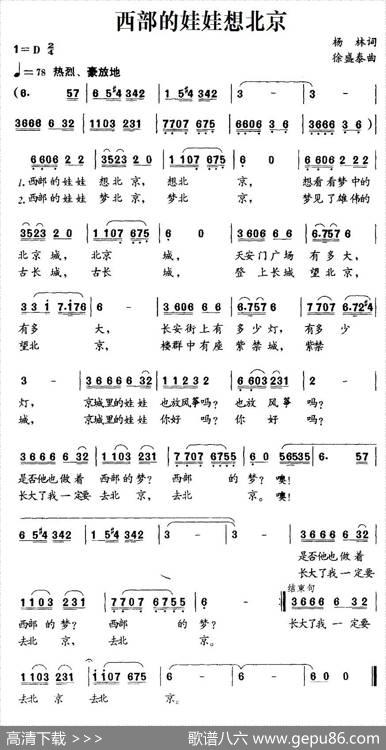 西部的娃娃想北京
1=D 2/4
杨 林词
♩=78 热烈、豪放地
徐盛泰曲
(6. 57 | 6 5♯4 342 | 1 5♯4 342 | 3 - | 3 - |
3666 6 32 | 1103 231 | 7707 675 | 6606 3 6 | 3666 3 6) |
6606 2 2 | 3523 2 0 | 1 107 675 | 6 0 | 3603 3 3 |
1.西部的娃娃 想北 京, 想北 京, 想看看梦中的
2.西部的娃娃 梦北 京, 梦北 京, 梦见了雄伟的
3523 2 0 | 1107 675 | 6 0 | 3 606 6 6 | 6.757 6 |
北京 城, 北京 城, 天安门广场 有多 大,
古长 城, 古长 城, 登 上长城 望北 京,
33 i 7.i76 | 6 - | 3 606 6 6 | 6.757 6 | 7707 6.72♯4 |
有多 大, 长安街上有 多少灯, 有多 少
望北 京, 楼群中有座 紫禁 城, 紫禁
3 - | 3666 6 32 | 11232 | 6 603 231 | 2 - |
灯, 京城里的娃娃 也放风筝吗? 也放风 筝 吗?
城, 京城里的娃娃 你好 吗? 你 好 吗?
3666 6 32 | 1103 231 | 7707 6755 | 6 0 56535 | 6. 57 |
是否他也做着 西部的 梦? 西部 的 梦? 噢!
长大了我一定要 去北 京, 去北 京。 噢!
6 5♯4 342 | 1 5♯4 342 | 3 - | 3 - | 3666 6 32 |
是否他也做着
长大了我一定要
结束句
1103 231 | 7707 6755 | 6 - :‖ 3666 6 32 |
西部的 梦? 西部 的 梦? 长大了我一定要
去北 京, 去北 京。
1103 231 | i i07 6755 | 6 - | 6 - | 6 0 ‖
去北 京 去北 京。
高清下载 >>>
歌谱八六 www.gepu86.com